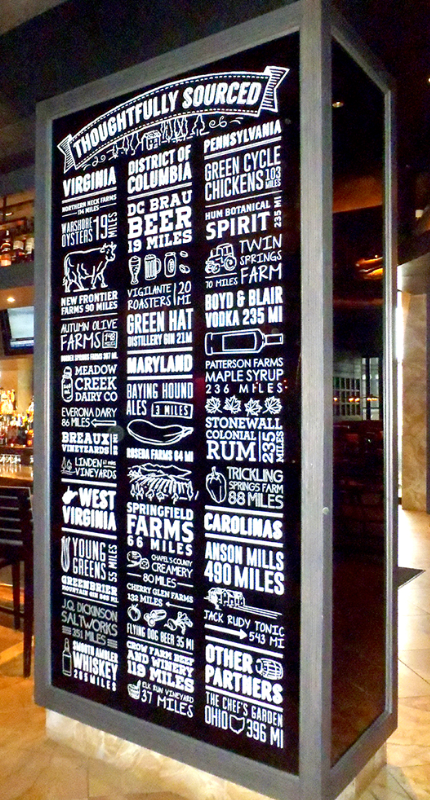 THOUGHTFULLY SOURCED
VIRGINIA
NORTHERN NECK FARMS
114 MILES
WARSHORE
OYSTERS 191 MILES
NEW FRONTIER
FARMS 90 MILES
AUTUMN OLIVE
FARMS
MEADOW
CREEK
DAIRY CO
EVERONA DAIRY
86 MILES
BREAUX
VINEYARDS
LINDEN
VINEYARDS
WEST
VIRGINIA
YOUNG
GREENS 55 MILES
GREENBRIER
J.Q. DICKINSON
SALTWORKS
351 MILES
SMOOTH AMBLER
WHISKEY
265 MILES
DISTRICT OF
COLUMBIA
DC BRAU
BEER
19 MILES
VIGILANTE
ROASTERS 20 MI
GREEN HAT
DISTILLERY GIN 21M
MARYLAND
BAYING HOUND
ALES 3 MILES
ROSEDA FARMS 64 MI
SPRINGFIELD
FARMS
66 MILES
CHAPEL'S COUNTY
CREAMERY
80 MILES
CHERRY GLEN FARMS
132 MILES
FLYING DOG BEER 35 MI
CROW FARM BEEF
AND WINERY
119 MILES
ELK RUN VINEYARD
37 MILES
PENNSYLVANIA
GREEN CYCLE
CHICKENS 103 MILES
HUM BOTANICAL
SPIRIT 235 MI
TWIN
SPRINGS
FARM
70 MILES
BOYD & BLAIR
VODKA 235 MI
PATTERSON FARMS
MAPLE SYRUP
236 MILES
STONEWALL
COLONIAL
RUM 235 MILES
TRICKLING
SPRINGS FARM
88 MILES
CAROLINAS
ANSON MILLS
490 MILES
JACK RUDY TONIC
543 MI
OTHER
PARTNERS
THE CHEF'S GARDEN
OHIO 396 MI